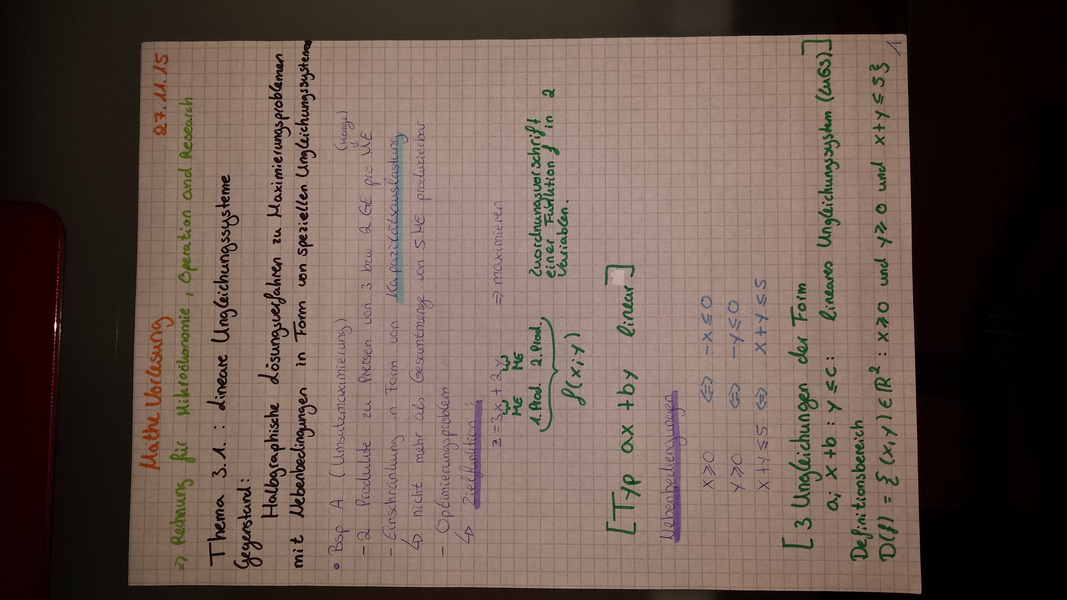 Mathe Vorlesung 27.11.15
=> Rechnung für Mikroökonomie, Operation and Research
Thema 3.1.: Lineare Ungleichungssysteme
Gegenstand:
Halbgraphische Lösungsverfahren zu Maximierungsproblemen
mit Nebenbedingungen in Form von speziellen Ungleichungssystemen
• Bsp A (Umsatzmaximierung)
(Menge)
- 2 Produkte zu Preisen von 3 bzw 2 GE pro ME
- Einschränkung in Form von Kapazitätsauslastung
↳ nicht mehr als Gesamtmenge von 5 ME produzierbar
- Optimierungsproblem
↳ Zielfunktion:
z = 3x + 2y => maximieren
ME ME
1. Prod. 2. Prod.
f(x,y)
Zuordnungsvorschrift
einer Funktion f in 2
Variablen.
[Typ ax + by linear]
Nebenbediengungen
x ≥ 0 <=> -x ≤ 0
y ≥ 0 <=> -y ≤ 0
x + y ≤ 5 <=> x + y ≤ 5
[3 Ungleichungen der Form
a; x + b : y ≤ c : lineares Ungleichungssystem (LUGS)]
Definitionsbereich
D(f) = { (x,y) ∈ ℝ² : x ≥ 0 und y ≥ 0 und x + y ≤ 5 }
1